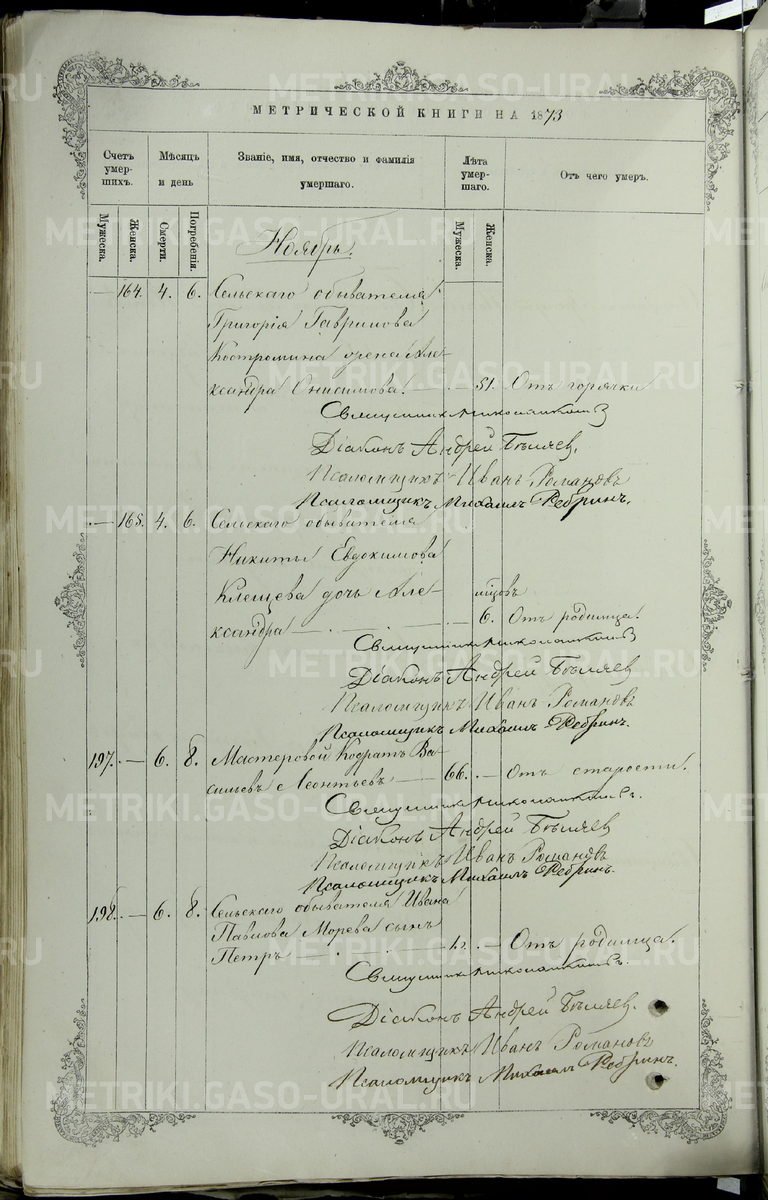 МЕТРИЧЕСКОЙ КНИГИ НА 1873
Счет умер-
ших.
Мѣсяцъ
и день
Званіе, имя, отчество и фамилія
умершаго.
Лѣта
умер-
шаго.
Отъ чего умеръ.
Мужеска.
Женска.
Смерти.
Погребенія.
Мужеска.
Женска.
Ноябрь.
164. 4. 6. Сельскаго обывателя
Григорія Гаврилова
Костромина жена Але-
ксандра Онисимова. 51. Отъ горячки
Священникъ
Діаконъ Андрей Бѣляев.
Псаломщикъ Иванъ Романовъ
Псаломщикъ Михаилъ Ребринъ.
165. 4. 6. Сельскаго обывателя
Никиты Евдокимова
Клещева дочь Але-
мѣсяцовъ
ксандра 6. Отъ родимца.
Священникъ
Діаконъ Андрей Бѣляев
Псаломщикъ Иванъ Романовъ
Псаломщикъ Михаилъ Ребринъ.
197. — 6. 8. Мастеровой Кодратъ Ва-
сильевъ Леонтьевъ 66. — Отъ старости.
Священникъ
Діаконъ Андрей Бѣляев
Псаломщикъ Иванъ Романовъ
Псаломщикъ Михаилъ Ребринъ.
198. — 6. 8. Сельскаго обывателя Ивана
Павлова Морева сынъ
Петръ — Отъ родимца.
Священникъ
Діаконъ Андрей Бѣляев.
Псаломщикъ Иванъ Романовъ
Псаломщикъ Михаилъ Ребринъ.
METRIKI.GASO-URAL.RU